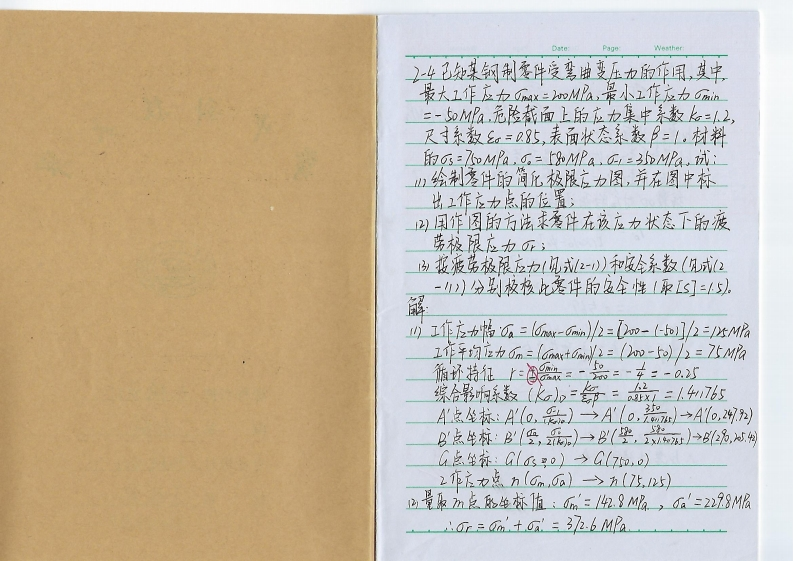 Date: Page: Weather:
2-4 已知某钢制零件受弯曲变应力的作用,其中,
最大工作应力 σmax=200MPa,最小工作应力 σmin
=-50MPa,危险截面上的应力集中系数 kσ=1.2,
尺寸系数 εσ=0.85,表面状态系数 β=1。材料
的 σs=750MPa, σ0=580MPa, σ-1=350MPa,试:
(1) 绘制零件的简化极限应力图,并在图中标
出工作应力点的位置;
(2) 用作图的方法求零件在该应力状态下的疲
劳极限应力 σr;
(3) 按疲劳极限应力(见式(2-1))和安全系数(见式(2
-11))分别校核此零件的安全性(取[S]=1.5)。
解:
(1) 工作应力幅 σa=(σmax-σmin)/2=[200-(-50)]/2=125MPa
工作平均应力 σm=(σmax+σmin)/2=(200-50)/2=75MPa
循环特征 r=σmin/σmax=-50/200=-1/4=-0.25
综合影响系数 (Kσ)D=kσ/εσβ=1.2/0.85×1=1.411765
A'点坐标: A'(0, σ-1/(Kσ)D)→A'(0, 350/1.411765)→A'(0,247.92)
B'点坐标: B'(σ0/2, σ0/2(Kσ)D)→B'(580/2, 580/2×1.411765)→B'(290,205.42)
G点坐标: G(σs,0)→G(750,0)
工作应力点 n(σm,σa)→n(75,125)
(2) 量取m点的坐标值: σm'=142.8MPa, σa'=229.8MPa
∴σr=σm'+σa'=372.6MPa